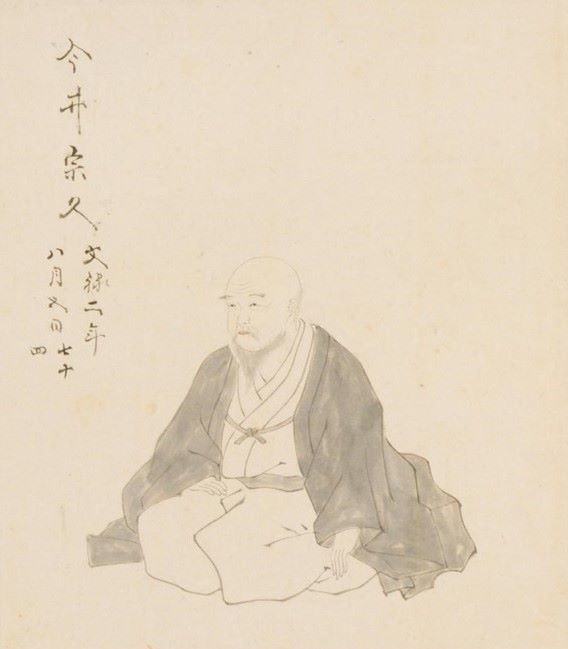 今井宗久
文禄二年
八月五日七十
四